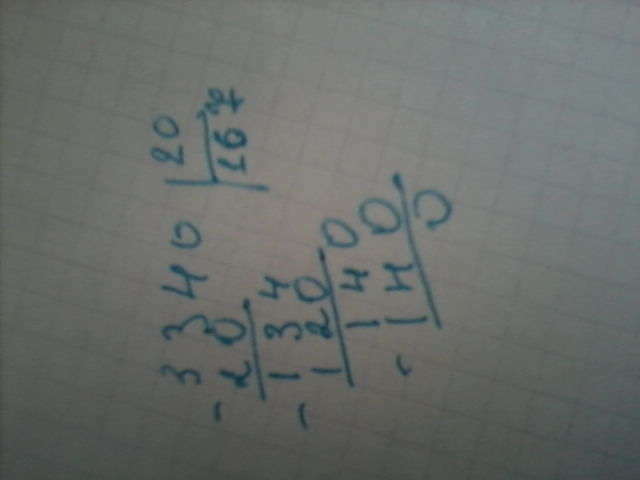 3340 | 20
- 20 | 167
134
- 120
140
- 140
0